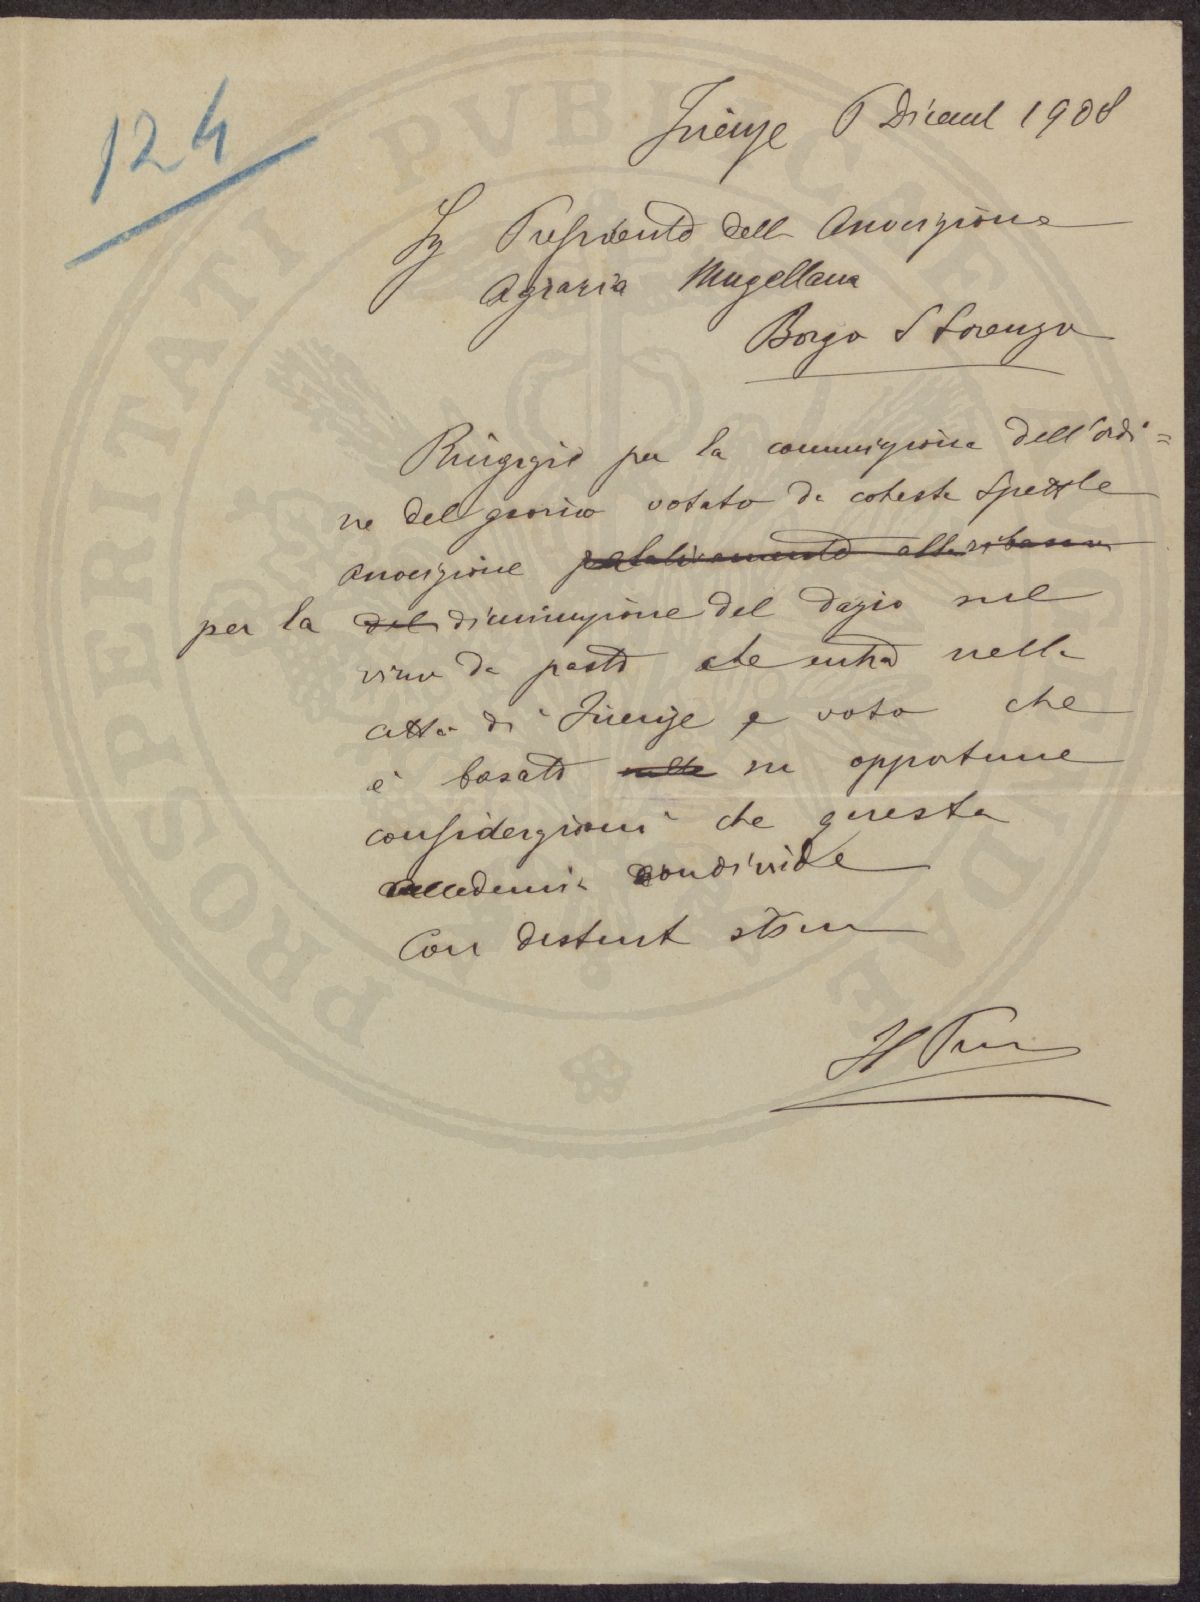 124
Firenze 6 Dicemb 1908
Sig Presidente dell Associazione
Agraria Mugellana
Borgo S Lorenzo
Ringrazio per la comunicazione dell'ordi=
ne del giorno votato da cotesta Spettle
Associazione relativamente alla
per la del diminuzione del dazio sul
vino da pasto che entra nella
città di Firenze e voto che
è basato sulle su opportune
considerazioni che questa
accademia condivide
Con distint stima
Il Pres
PROSPERITATI PVBLICAE